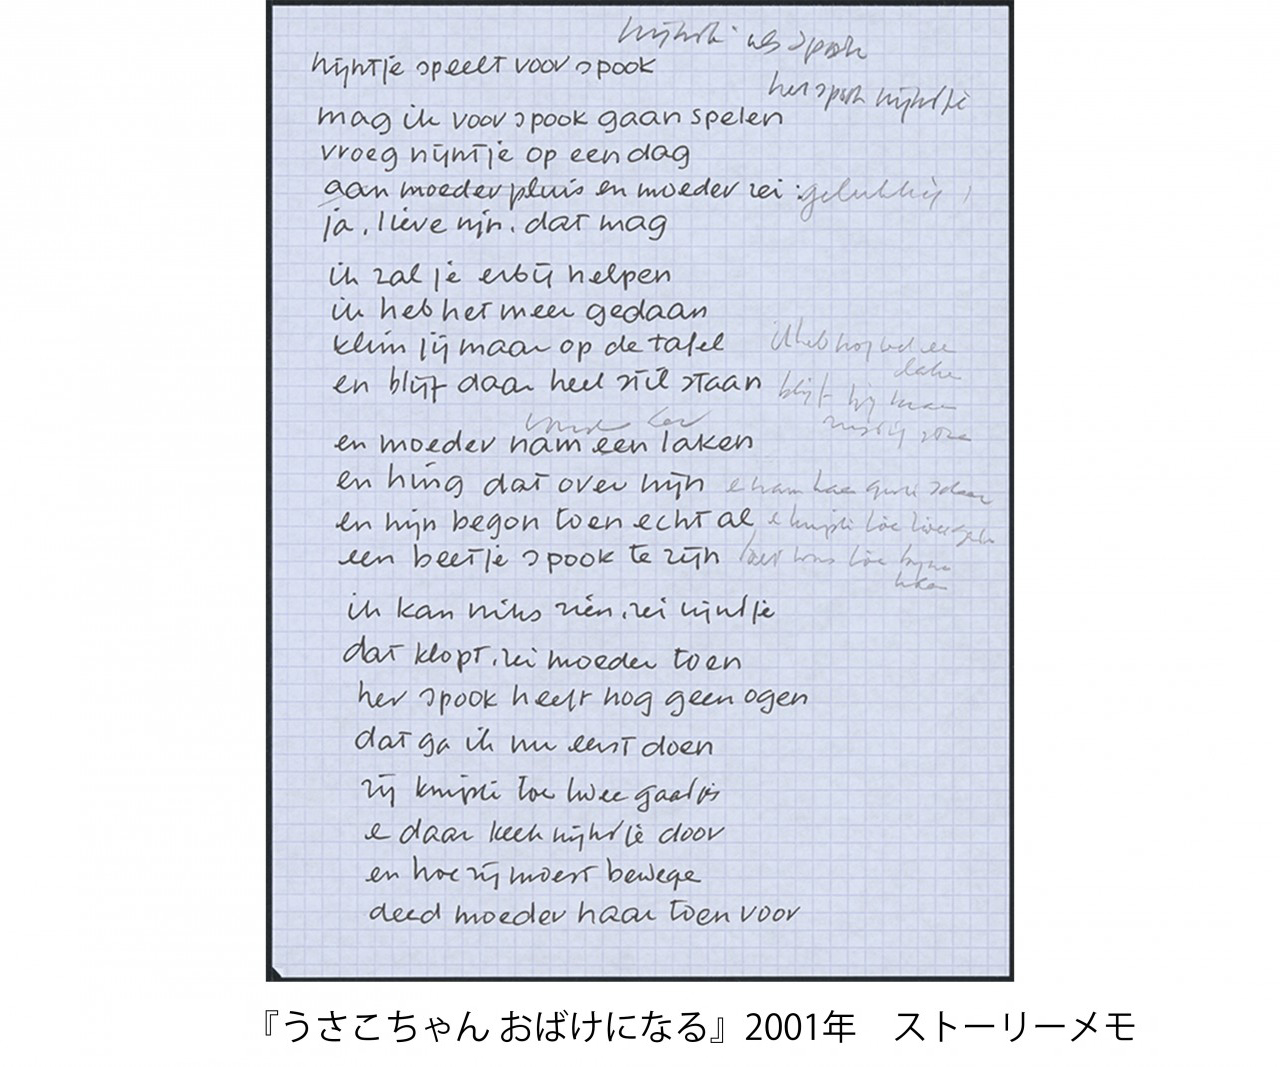 nijntje als spook
nijntje speelt voor spook
het spook nijntje
mag ik voor spook gaan spelen
vroeg nijntje op een dag
aan moeder pluis en moeder zei :
ja, lieve nijn, dat mag
ik zal je erbij helpen
ik heb het meer gedaan
klim jij maar op de tafel
en blijf daar heel stil staan
en moeder nam een laken
en hing dat over nijn
en nijn begon toen echt al
een beetje spook te zijn
ik kan niks zien, zei nijntje
dat klopt, zei moeder toen
het spook heeft nog geen ogen
dat ga ik nu eerst doen
zij knipte toe twee gaatjes
e daar keek nijntje door
en hoe zij moest bewege
deed moeder haar toen voor
『うさこちゃん おばけになる』2001年　ストーリーメモ